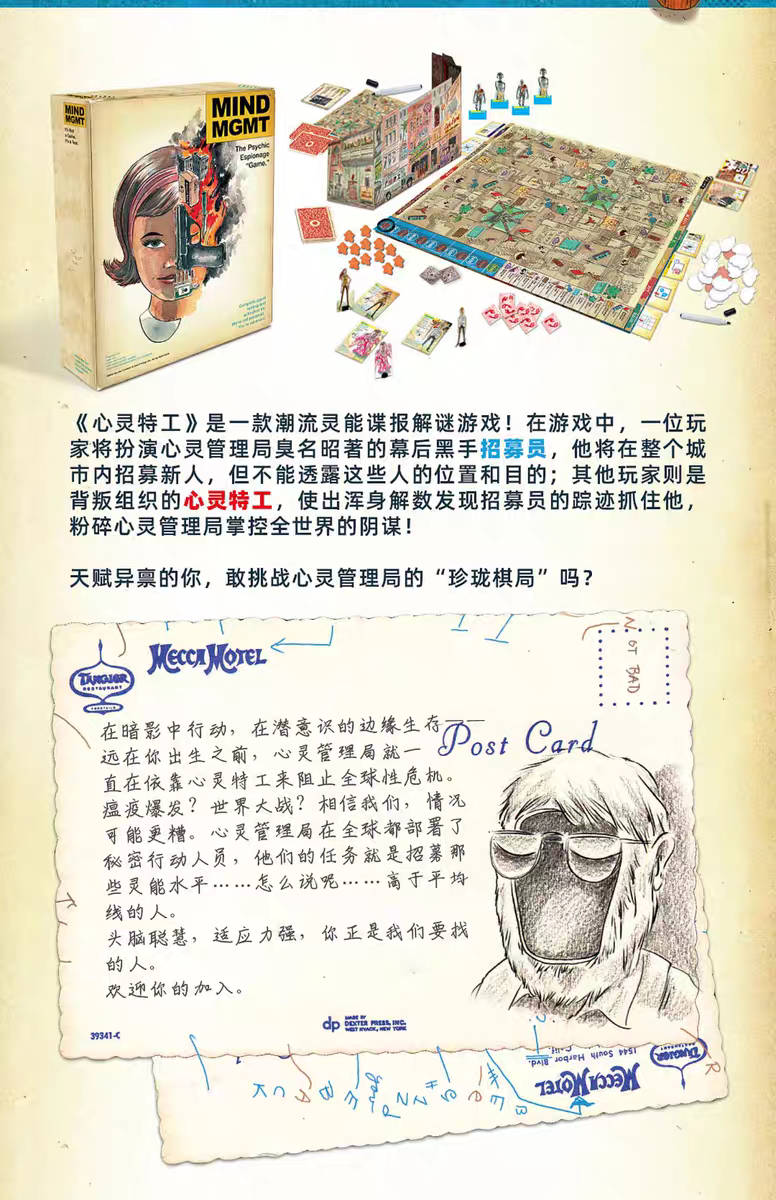 MIND
MGMT
The Psychic
Espionage
"Game."
MIND
MGMT
《心灵特工》是一款潮流灵能谍报解谜游戏！在游戏中，一位玩
家将扮演心灵管理局臭名昭著的幕后黑手招募员，他将在整个城
市内招募新人，但不能透露这些人的位置和目的；其他玩家则是
背叛组织的心灵特工，使出浑身解数发现招募员的踪迹抓住他，
粉碎心灵管理局掌控全世界的阴谋！
天赋异禀的你，敢挑战心灵管理局的“珍珑棋局”吗？
TANGIER
RESTAURANT
COCKTAILS
MECCA MOTEL
NOT BAD
Post Card
在暗影中行动，在潜意识的边缘生存——
远在你出生之前，心灵管理局就一
直在依靠心灵特工来阻止全球性危机。
瘟疫爆发？世界大战？相信我们，情况
可能更糟。心灵管理局在全球都部署了
秘密行动人员，他们的任务就是招募那
些灵能水平……怎么说呢……高于平均
线的人。
头脑聪慧，适应力强，你正是我们要找
的人。
欢迎你的加入。
39341-C
dp
MADE BY
DEXTER PRESS, INC.
WEST NYACK, NEW YORK
TANGIER
MECCA MOTEL
1544 South Harbor Blvd.
Calif.